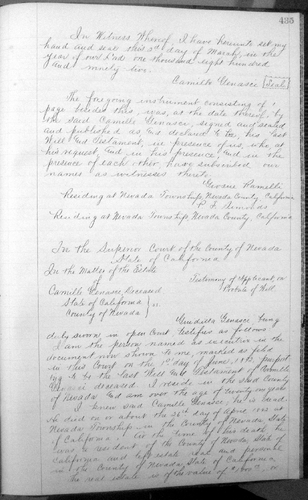 435
In Witness Whereof, I have hereunto set my
hand and seal this day of March, in the
year of our Lord one thousand eight hundred
and ninety two.
Camille Genasci [Seal]
The foregoing instrument consisting of 1
page besides this, was, at the date thereof, by
the said Camille Genasci, signed and sealed
and published as, and declared to be, his last
Will and Testament, in presence of us, who, at
his request and in his presence, and in the
presence of each other, have subscribed our
names as witnesses thereto.
Ramelli
Residing at Nevada Township, Nevada County, California
Residing at Nevada Township, Nevada County, California
In the Superior Court of the County of Nevada
State of California
In the Matter of the Estate
of
Camille Genasci, deceased
Testimony of Applicant, on
Probate of Will
State of California
County of Nevada } ss.
Genasci being
duly sworn in open Court testifies as follows
I am the person named as executrix in the
document now shown to me, marked as filed
in this Court on the day of June,
to be the Last Will and Testament of Camille
Genasci deceased. I reside in the said County
of Nevada and am over the age of twenty one years
I knew said Camille Genasci
He died on or about the 26th day of April at
Nevada Township in the County of Nevada State
of California. At the time of his death he
was a resident of the County of Nevada State of
California and left estate real and personal
in the County of Nevada State of California.
The real estate is of the value of